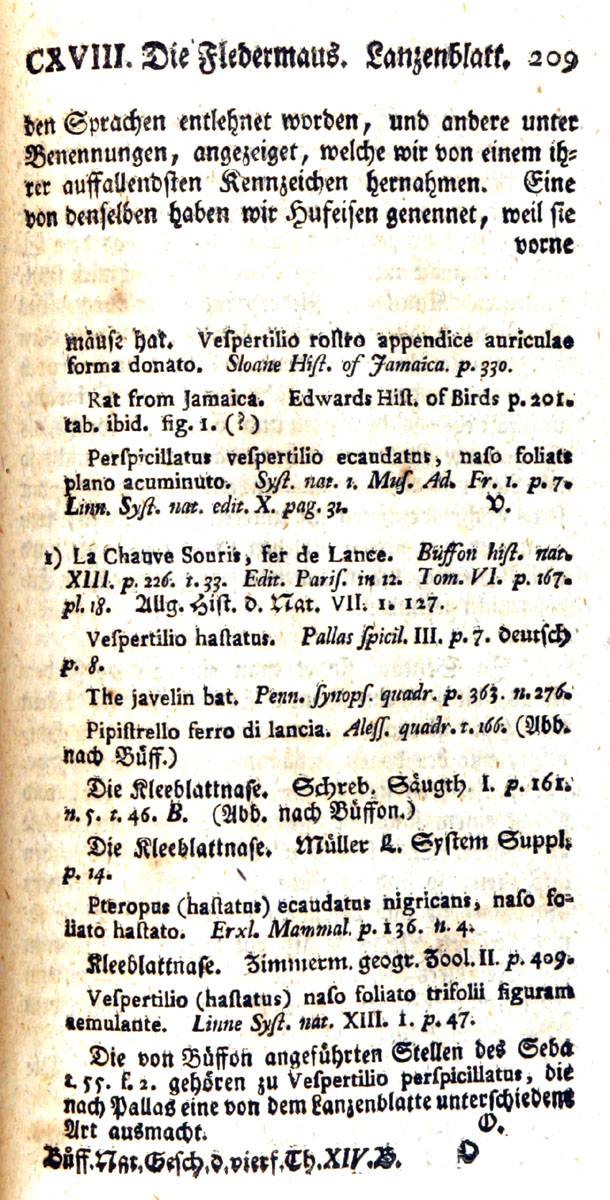 CXVIII. Die Fledermaus. Lanzenblatt. 209
den Sprachen entlehnet worden, und andere unter
Benennungen, angezeiget, welche wir von einem ih-
rer auffallendsten Kennzeichen hernahmen. Eine
von denselben haben wir Hufeisen genennet, weil sie
vorne
mäuse hat. Vespertilio rostro appendice auriculae
forma donato. Sloane Hist. of Jamaica. p. 330.
Rat from Jamaica. Edwards Hist. of Birds p. 201.
tab. ibid. fig. 1. (?)
Perspicillatus vespertilio ecaudatus, naso foliato
plano acuminuto. Syst. nat. 1. Mus. Ad. Fr. 1. p. 7.
Linn. Syst. nat. edit. X. pag. 31. V.
1) La Chauve Souris, fer de Lance. Büffon hist. nat.
XIII. p. 226. t. 33. Edit. Paris. in 12. Tom. VI. p. 167.
pl. 18. Allg. Hist. d. Nat. VII. 1. 127.
Vespertilio hastatus. Pallas spicil. III. p. 7. deutsch
p. 8.
The javelin bat. Penn. synops. quadr. p. 363. n. 276.
Pipistrello ferro di lancia. Aless. quadr. t. 166. (Abb.
nach Büff.)
Die Kleeblattnase. Schreb. Säugth I. p. 161.
n. 5. t. 46. B. (Abb. nach Büffon.)
Die Kleeblattnase. Müller L. System Suppl.
p. 14.
Pteropus (hastatus) ecaudatus nigricans, naso fo-
liato hastato. Erxl. Mammal. p. 136. n. 4.
Kleeblattnase. Zimmerm. geogr. Zool. II. p. 409.
Vespertilio (hastatus) naso foliato trifolii figuram
aemulante. Linne Syst. nat. XIII. I. p. 47.
Die von Büffon angeführten Stellen des Seba
t. 55. f. 2. gehören zu Vespertilio perspicillatus, die
nach Pallas eine von dem Lanzenblatte unterschiedene
Art ausmacht. O.
Büff. Nat. Gesch. d. vierf. Th. XIV. B. O